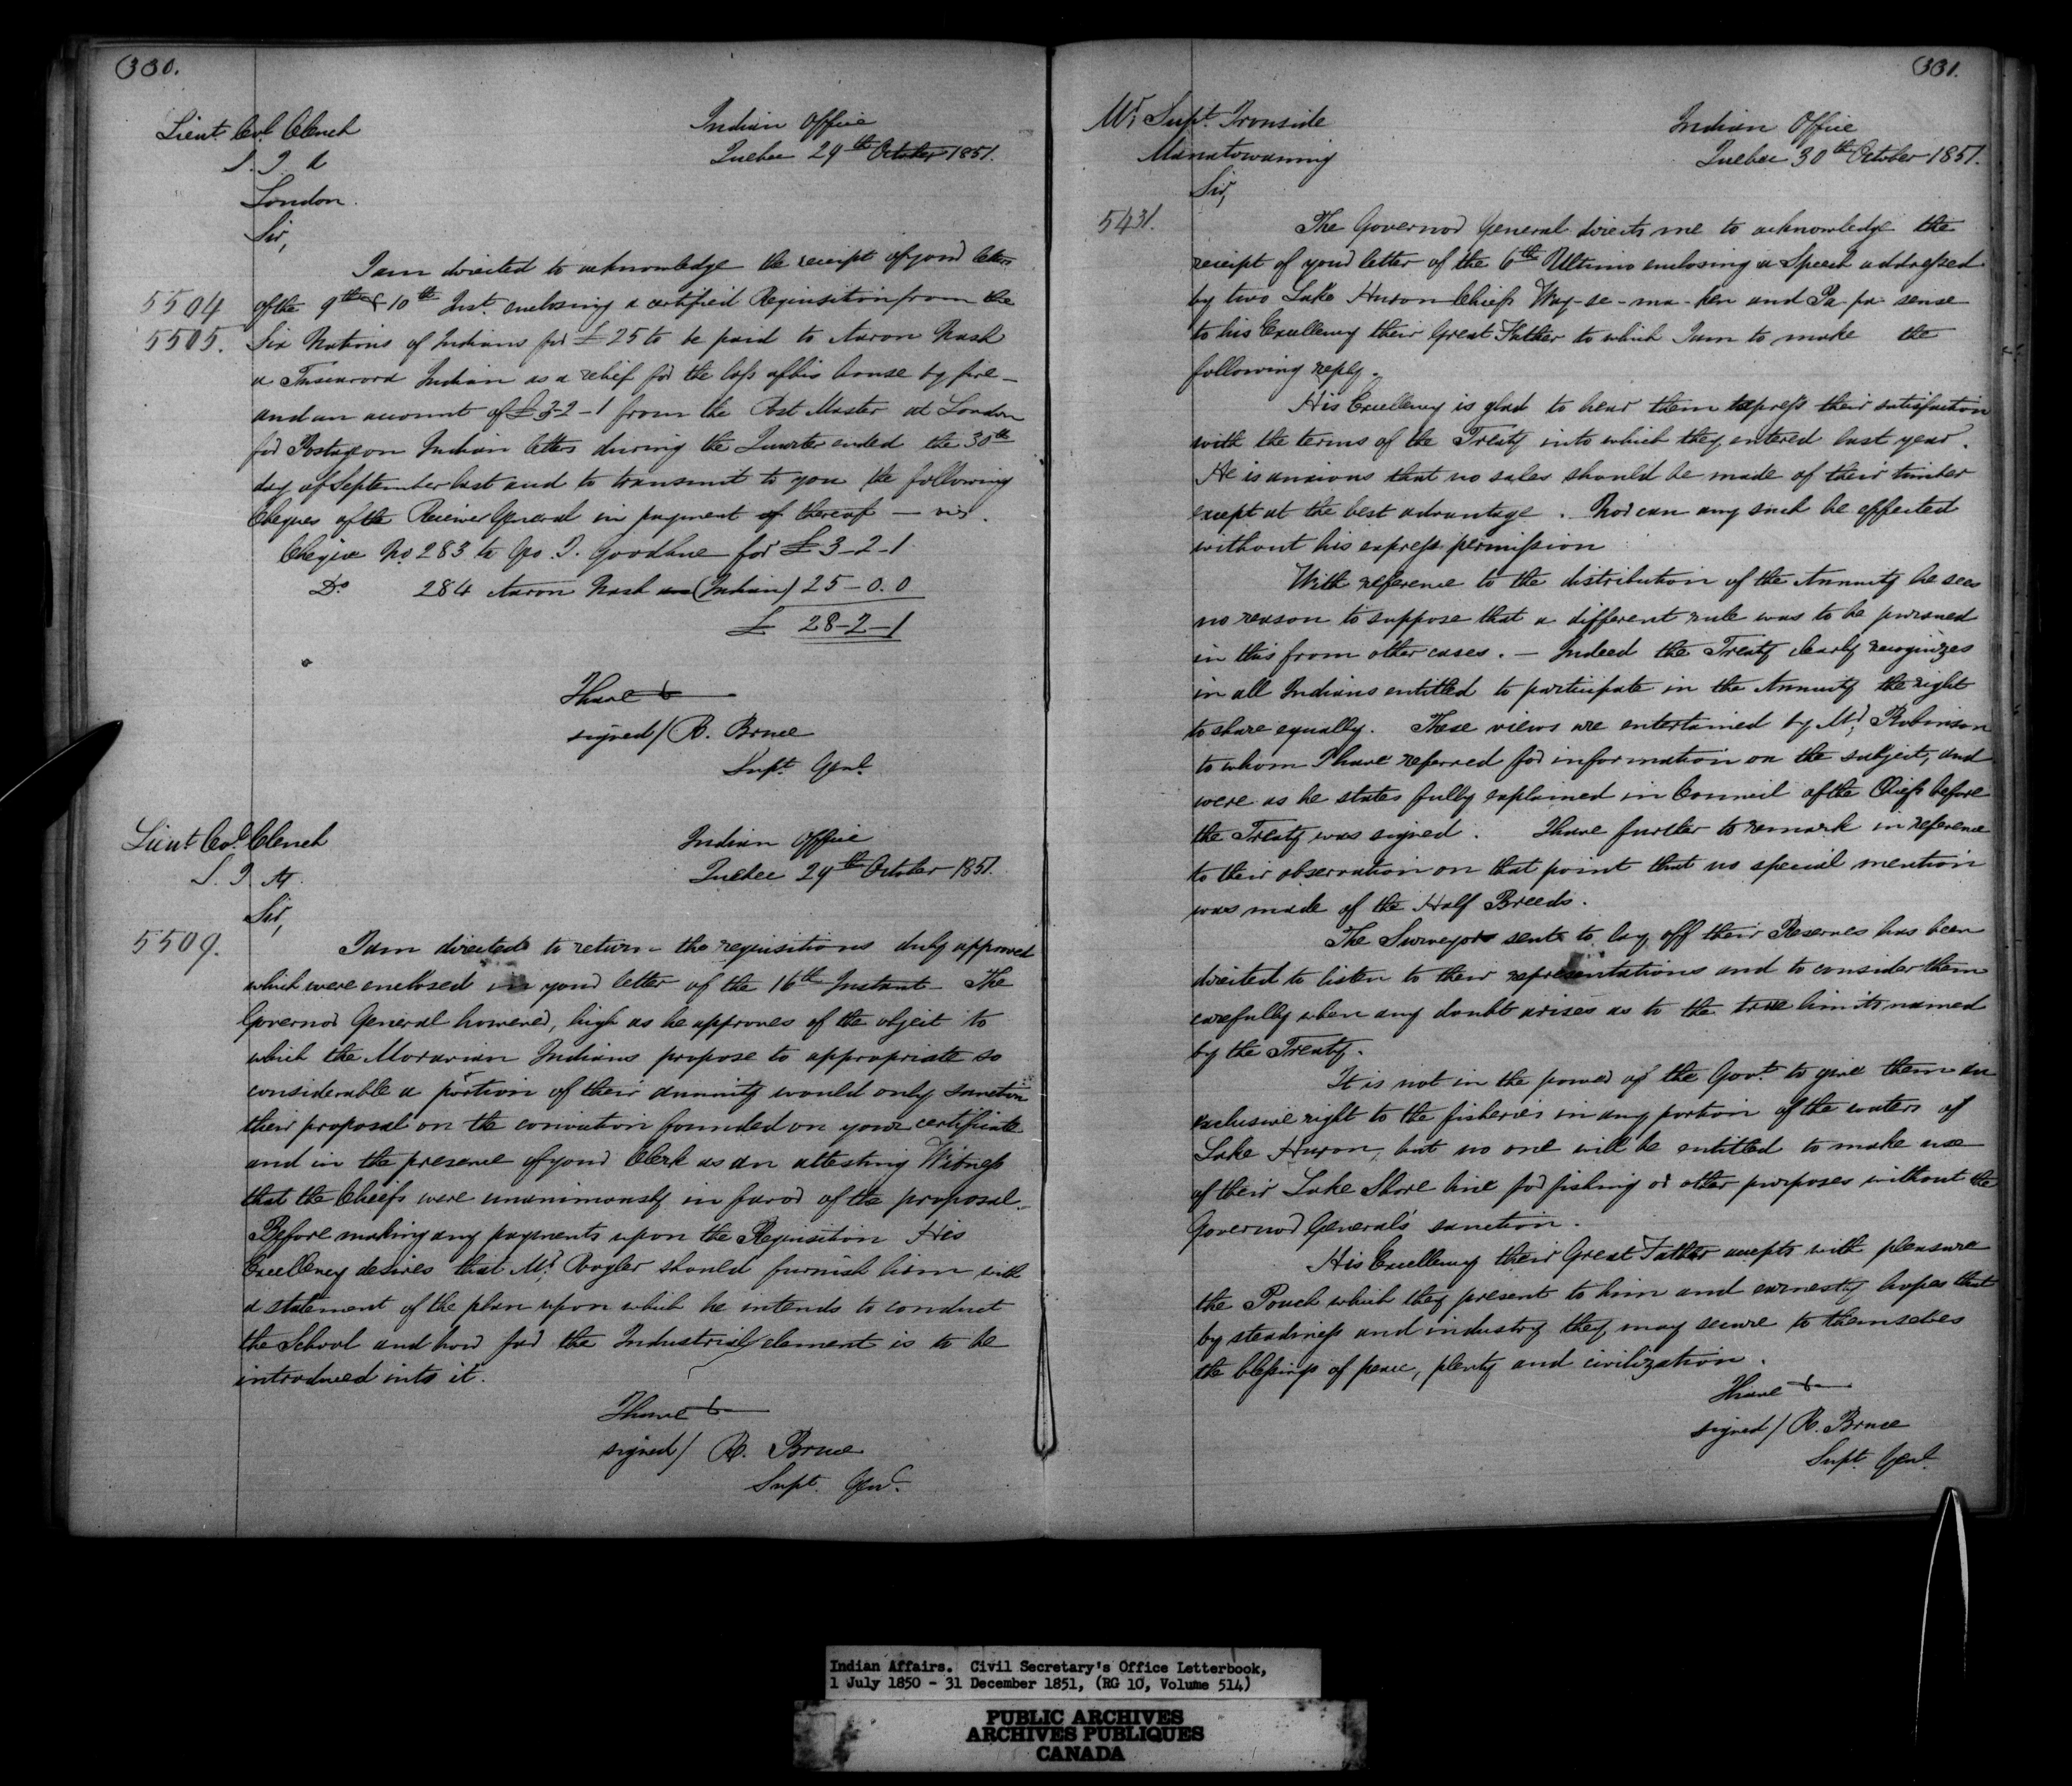 330.
Lieut. Col. Clench
S. I. A
London.
Indian Office
Quebec 29th October 1851.
Sir,
I am directed to acknowledge the receipt of your letters
5504
of the 9th & 10th Inst. enclosing a certified Requisition from the
5505.
Six Nations of Indians for £25 to be paid to Aaron Nash
a Tuscarora Indian as a relief for the loss of his house by fire —
and an account of £3-2-1 from the Post Master at London
for Postage on Indian letters during the Quarter ended the 30th
day of September last and to transmit to you the following
Cheques of the Receiver General in payment of thereof — viz.
Cheque No 283 to Geo. J. Goodhue for £3-2-1
Do. 284 Aaron Nash (Indian) 25-0.0
£ 28-2-1
I have &
signed/ R. Bruce
Supt. Genl.
Lieut. Col. Clench
S. I. A.
Indian Office
Quebec 29th October 1851.
Sir,
5509.
I am directed to return the requisitions duly approved
which were enclosed in your letter of the 16th Instant — The
Governor General however, high as he approves of the object to
which the Moravian Indians propose to appropriate so
considerable a portion of their annuity would only sanction
their proposal on the conviction founded on your certificate
and in the presence of your Clerk as an attesting Witness
that the Chiefs were unanimously in favor of the proposal.
Before making any payments upon the Requisition His
Excellency desires that Mr. Vogler should furnish him with
a statement of the plan upon which he intends to conduct
the School and how far the Industrial element is to be
introduced into it.
I have &
signed/ R. Bruce
Supt. Genl.
331.
Mr. Supt. Ironside
Manatowaning
Indian Office
Quebec 30th October 1851.
Sir,
5431.
The Governor General directs me to acknowledge the
receipt of your letter of the 6th Ultimo enclosing a Speech addressed
by two Lake Huron Chiefs Way-se-ma-ken and Pa-pa-sense
to his Excellency their Great Father to which I am to make the
following reply.
His Excellency is glad to hear them express their satisfaction
with the terms of the Treaty into which they entered last year.
He is anxious that no sales should be made of their timber
except at the best advantage. Nor can any such be effected
without his express permission
With reference to the distribution of the Annuity he sees
no reason to suppose that a different rule was to be pursued
in this from other cases. — Indeed the Treaty clearly recognizes
in all Indians entitled to participate in the Annuity the right
to share equally. These views are entertained by Mr. Robinson
to whom I have referred for information on the subject, and
were as he states fully explained in Council of the Chiefs before
the Treaty was signed. I have further to remark in reference
to their observation on that point that no special mention
was made of the Half Breeds.
The Surveyor sent to lay off their Reserves has been
directed to listen to their representations and to consider them
carefully when any doubt arises as to the true limits named
by the Treaty.
It is not in the power of the Govt. to give them an
exclusive right to the fisheries in any portion of the waters of
Lake Huron, but no one will be entitled to make use
of their Lake Shore line for fishing or other purposes without the
Governor General's sanction.
His Excellency their Great Father accepts with pleasure
the Pouch which they present to him and earnestly hopes that
by steadiness and industry they may secure to themselves
the blessings of peace, plenty and civilization.
I have &
signed/ R. Bruce
Supt. Genl.
Indian Affairs. Civil Secretary's Office Letterbook,
1 July 1850 - 31 December 1851, (RG 10, Volume 514)
PUBLIC ARCHIVES
ARCHIVES PUBLIQUES
CANADA